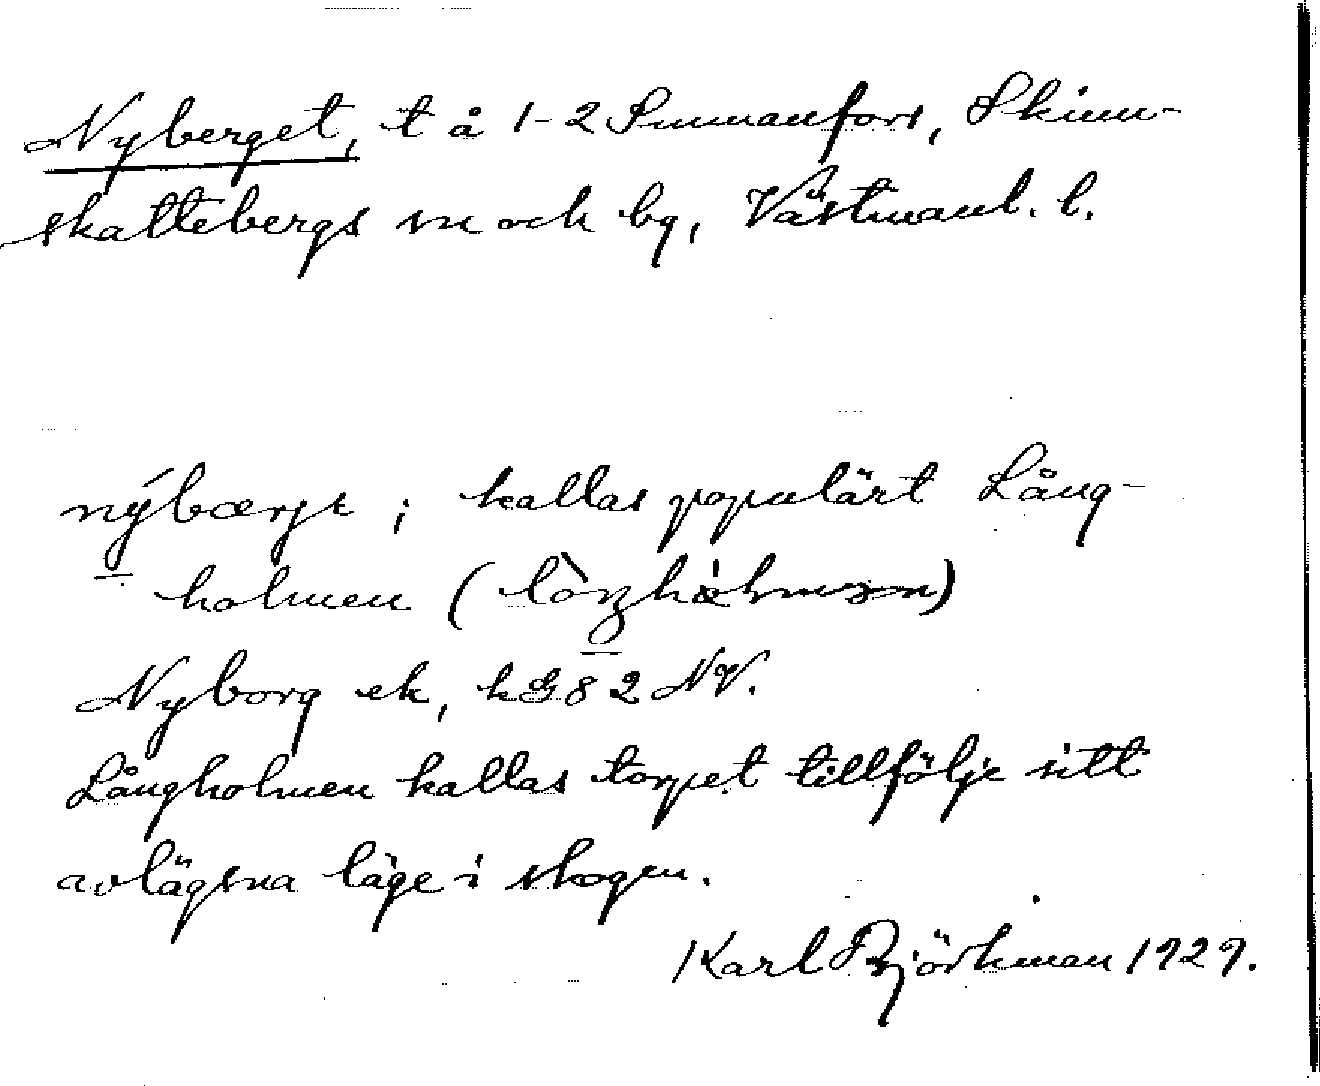 Nyberget, t å 1-2 Sunnanfors, Skinn-
skattebergs sn och by, Västmanl. l.
nýbærjt ; kallas populärt Lång-
holmen (
Nyborg ek, kG82NV.
Långholmen kallas torpet tillfölje sitt
avlägsna läge i skogen.
Karl Björkman 1929.